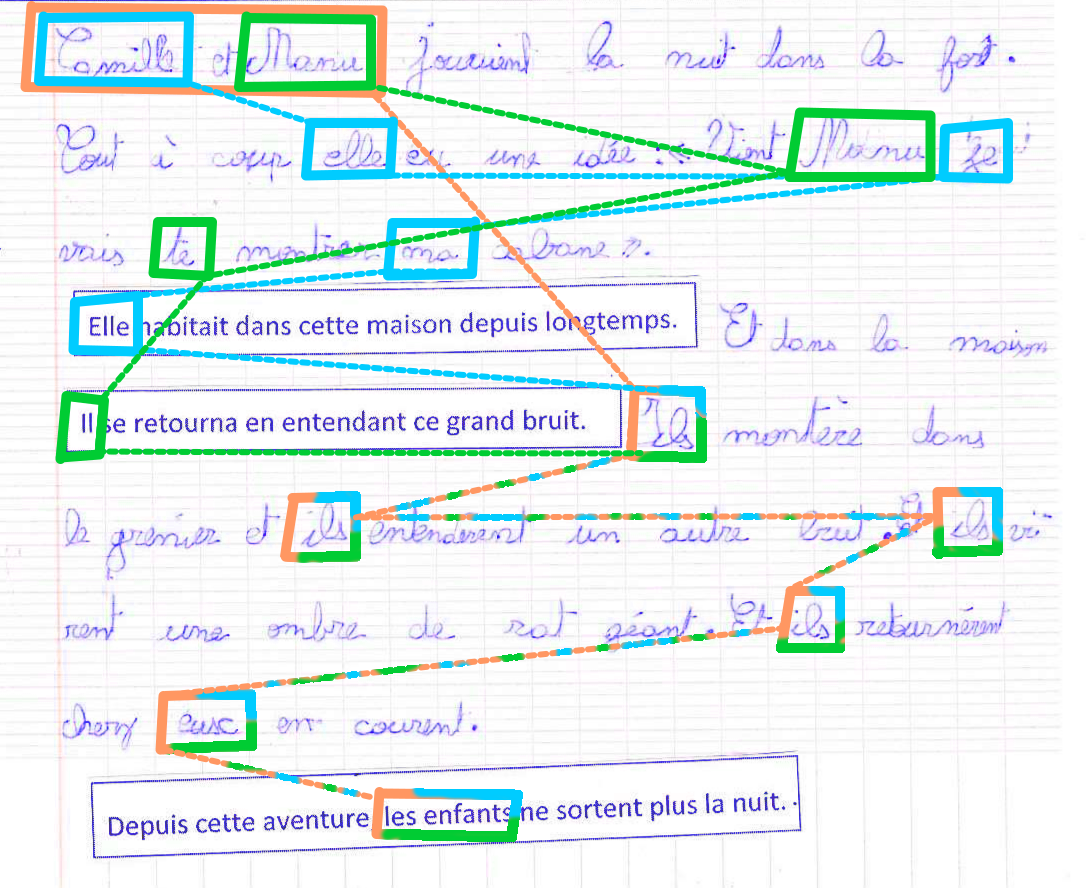 Camille et Manu jouuient la nuit dans la forêt.
Tout à coup elle eu une idée : « Vient Manu je
vais te montrer ma cabane ».
Elle habitait dans cette maison depuis longtemps. Et dans la maison
Il se retourna en entendant ce grand bruit. Ils montère dans
le grenier et ils entendirent un autre bruit. Et ils vi-
rent une ombre de rat géant. Et ils reburnérent
chez eusc en courent.
Depuis cette aventure les enfants ne sortent plus la nuit.